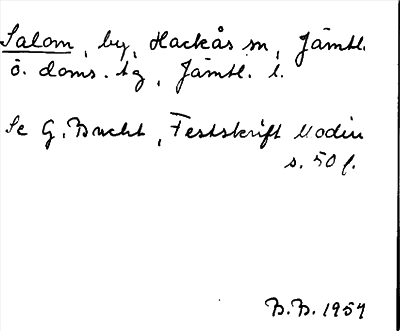 Salom, by, Hackås sn, Jämtl.
ö. doms. tg, Jämtl. l.
Se G. Bucht, Festskrift Modin
s. 50 f.
B.B. 1959